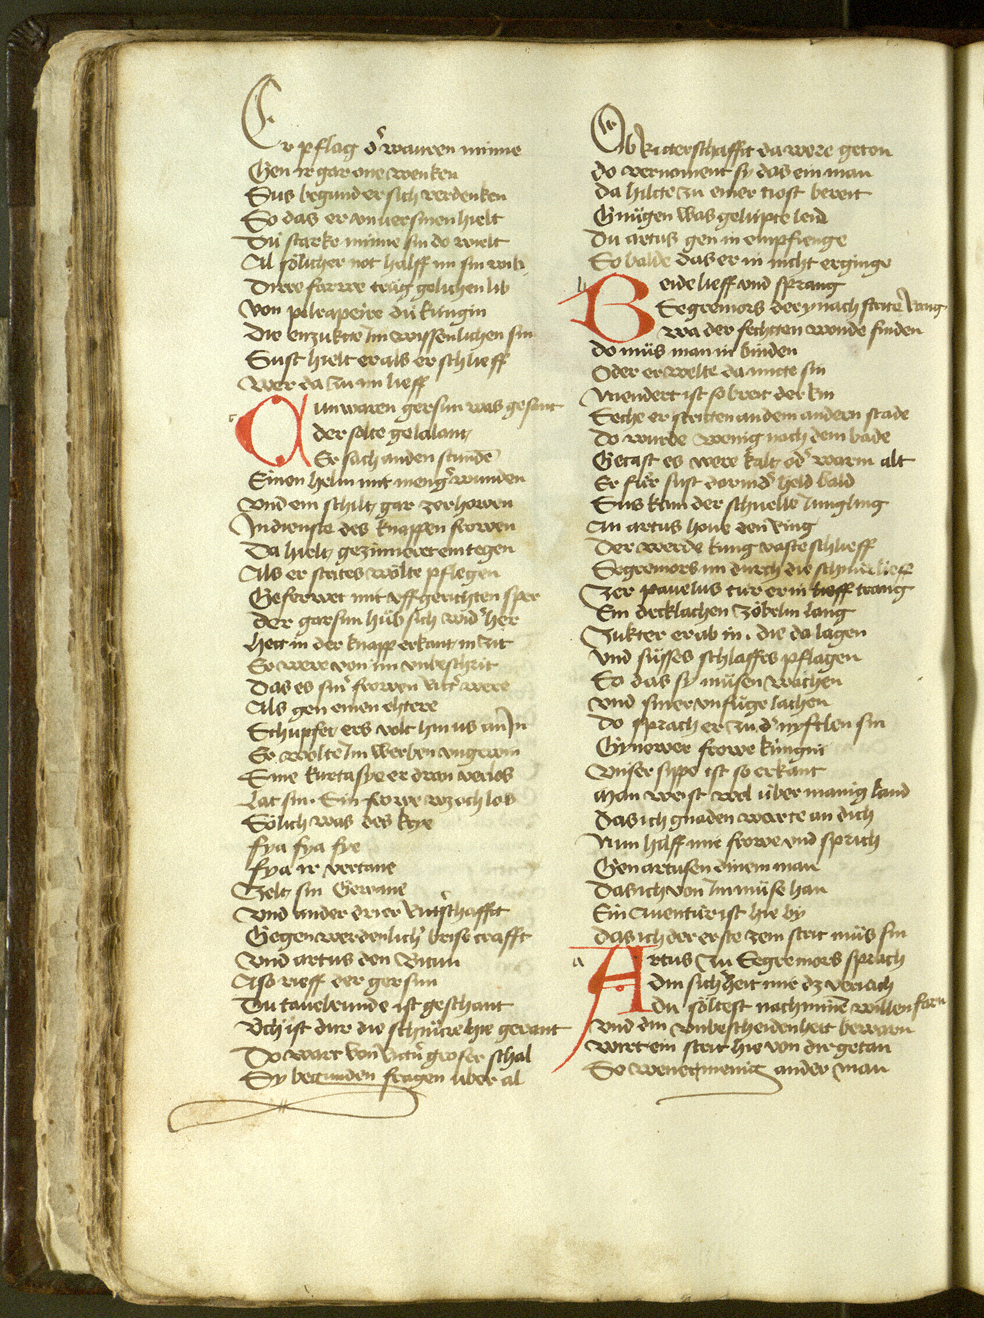 Er pflag d͛ waurren minne
Gen ir gar one wenken
Sus begund er sich verdenken
So das er vnuersinen hielt
Dú starke minne sin do wielt
Al sölicher not halff im sin wib
Dirre farwe trůg gelichen lib
Von pelrapeire dú kúngin
Die enzukte im wissenlichen sin
Sust hielt er als er schlieff
Wer da zu im lieff
Cunwaren gersun was gesant
der solte gelalant
Er sach an den stunde
Einen helm mit meng͛ wunden
Vnd ein schilt gar zerhowen
In dienste des knappen frowen
Da hielt gezimieret ein tegen
Als er strites wölte pflegen
Geferwet mit vffgerichten sper
Der garsun hůb sich wid͛ her
Hett in der knapp erkant in zit
Er were von im vnbeschrit
Das es sin͛ frowen ritt͛ were
Als gen einen ehtere
Schupfet ers volk hin us an In
Er wolte Im werben vngewin
Sine kurtasye er dran verlos
Lat sin. Sin frowe wz och los
Sölich was des krye
fya fya fye
fya ir vertane
Zelt sin Gewane
Vnd ander direr ritt͛schafft
Gegen werdenlich͛ brise crafft
Vnd artus den Britun
Also rieff der gersun
Du tauelrunde ist geschant
Úch ist dur die schnúre hie gerant
Do wart von rittn͛ grosser schal
Sy begunden fragen úber al
Ob Ritterschafft da were geton
do vernoment sy das ein man
Da hilte zu einer tiost bereit
Gnůgen was gelúpte leid
Du artus gen in empfienge
So balde das er in nicht erginge
Beide lieff vnd sprang
Segremors der y nach strite rang
Wa der fechten wonde finden
do můs man in binden
Oder er welte da mitte sin
Niendert ist so breit der Rin
Seche er stritten an dem andern stade
Do wurde wenig nach dem bade
Getast es were kalt od͛ warm alt
Er fúr sust dar in d͛ held bald
Sus kam der schnelle Jungling
An artus houe den Ring
Der werde kung vaste schlieff
Segremors im durch die schnúr lieff
Zer pauelus túr er in trang
Ein decklachen zöbelin lang
Zukter er ab in. die da lagen
Vnd sússes schlaffes pflagen
So das sy můsen wachen
Vnd siner vnfůge lachen
Do sprach er zu d͛ nyfteln sin
Gynower frowe kúngin
Vnser sype ist so erkant
Man weist wol úber manig land
Das ich gnaden warte an dich
Nun hilff mir frowe vnd sprich
Gen artusen dinem man
Das ich von Im můse han
Ein Auentúr ist hie by
Das ich der erste zem strit můs sin
Artus zu Segremors sprach
din sicherheit mir dz veriach
du söltest nach minē willen farn
Vnd din vnbescheidenheit bewarn
Wirt ein strit hie von dir getan
So wenet menig ander man